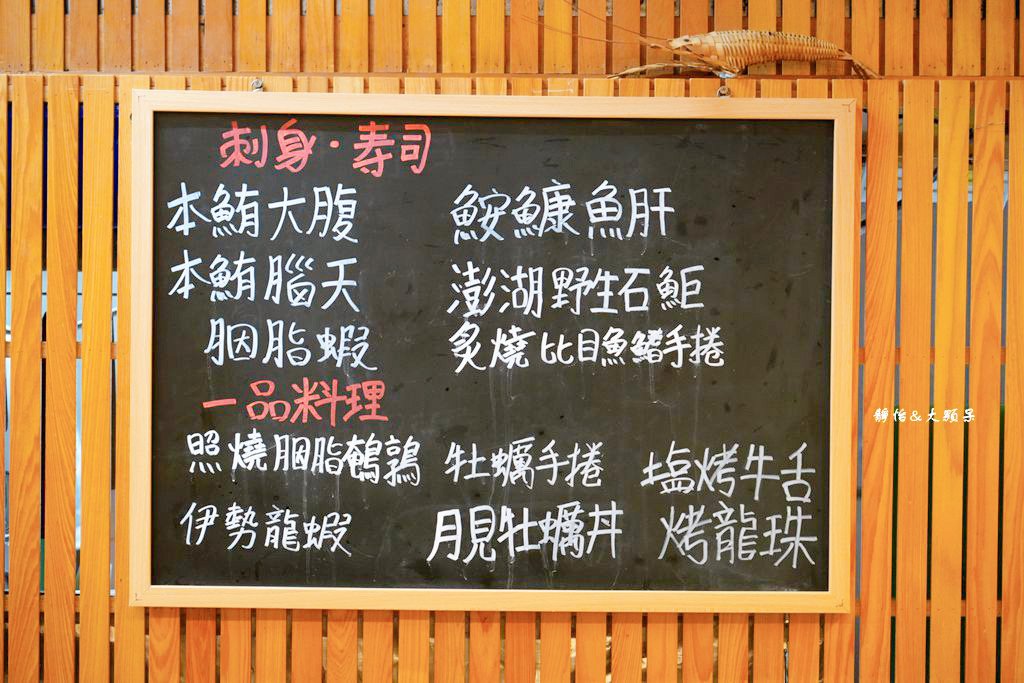 刺身·寿司
本鮪大腹 鮟鱇魚肝
本鮪腦天 澎湖野生石鮔
胭脂蝦 炙燒比目魚鰭手捲
一品料理
照燒胭脂鵪鶉 牡蠣手捲 塩烤牛舌
伊勢龍蝦 月見牡蠣丼 烤龍珠
靜怡&大顆呆